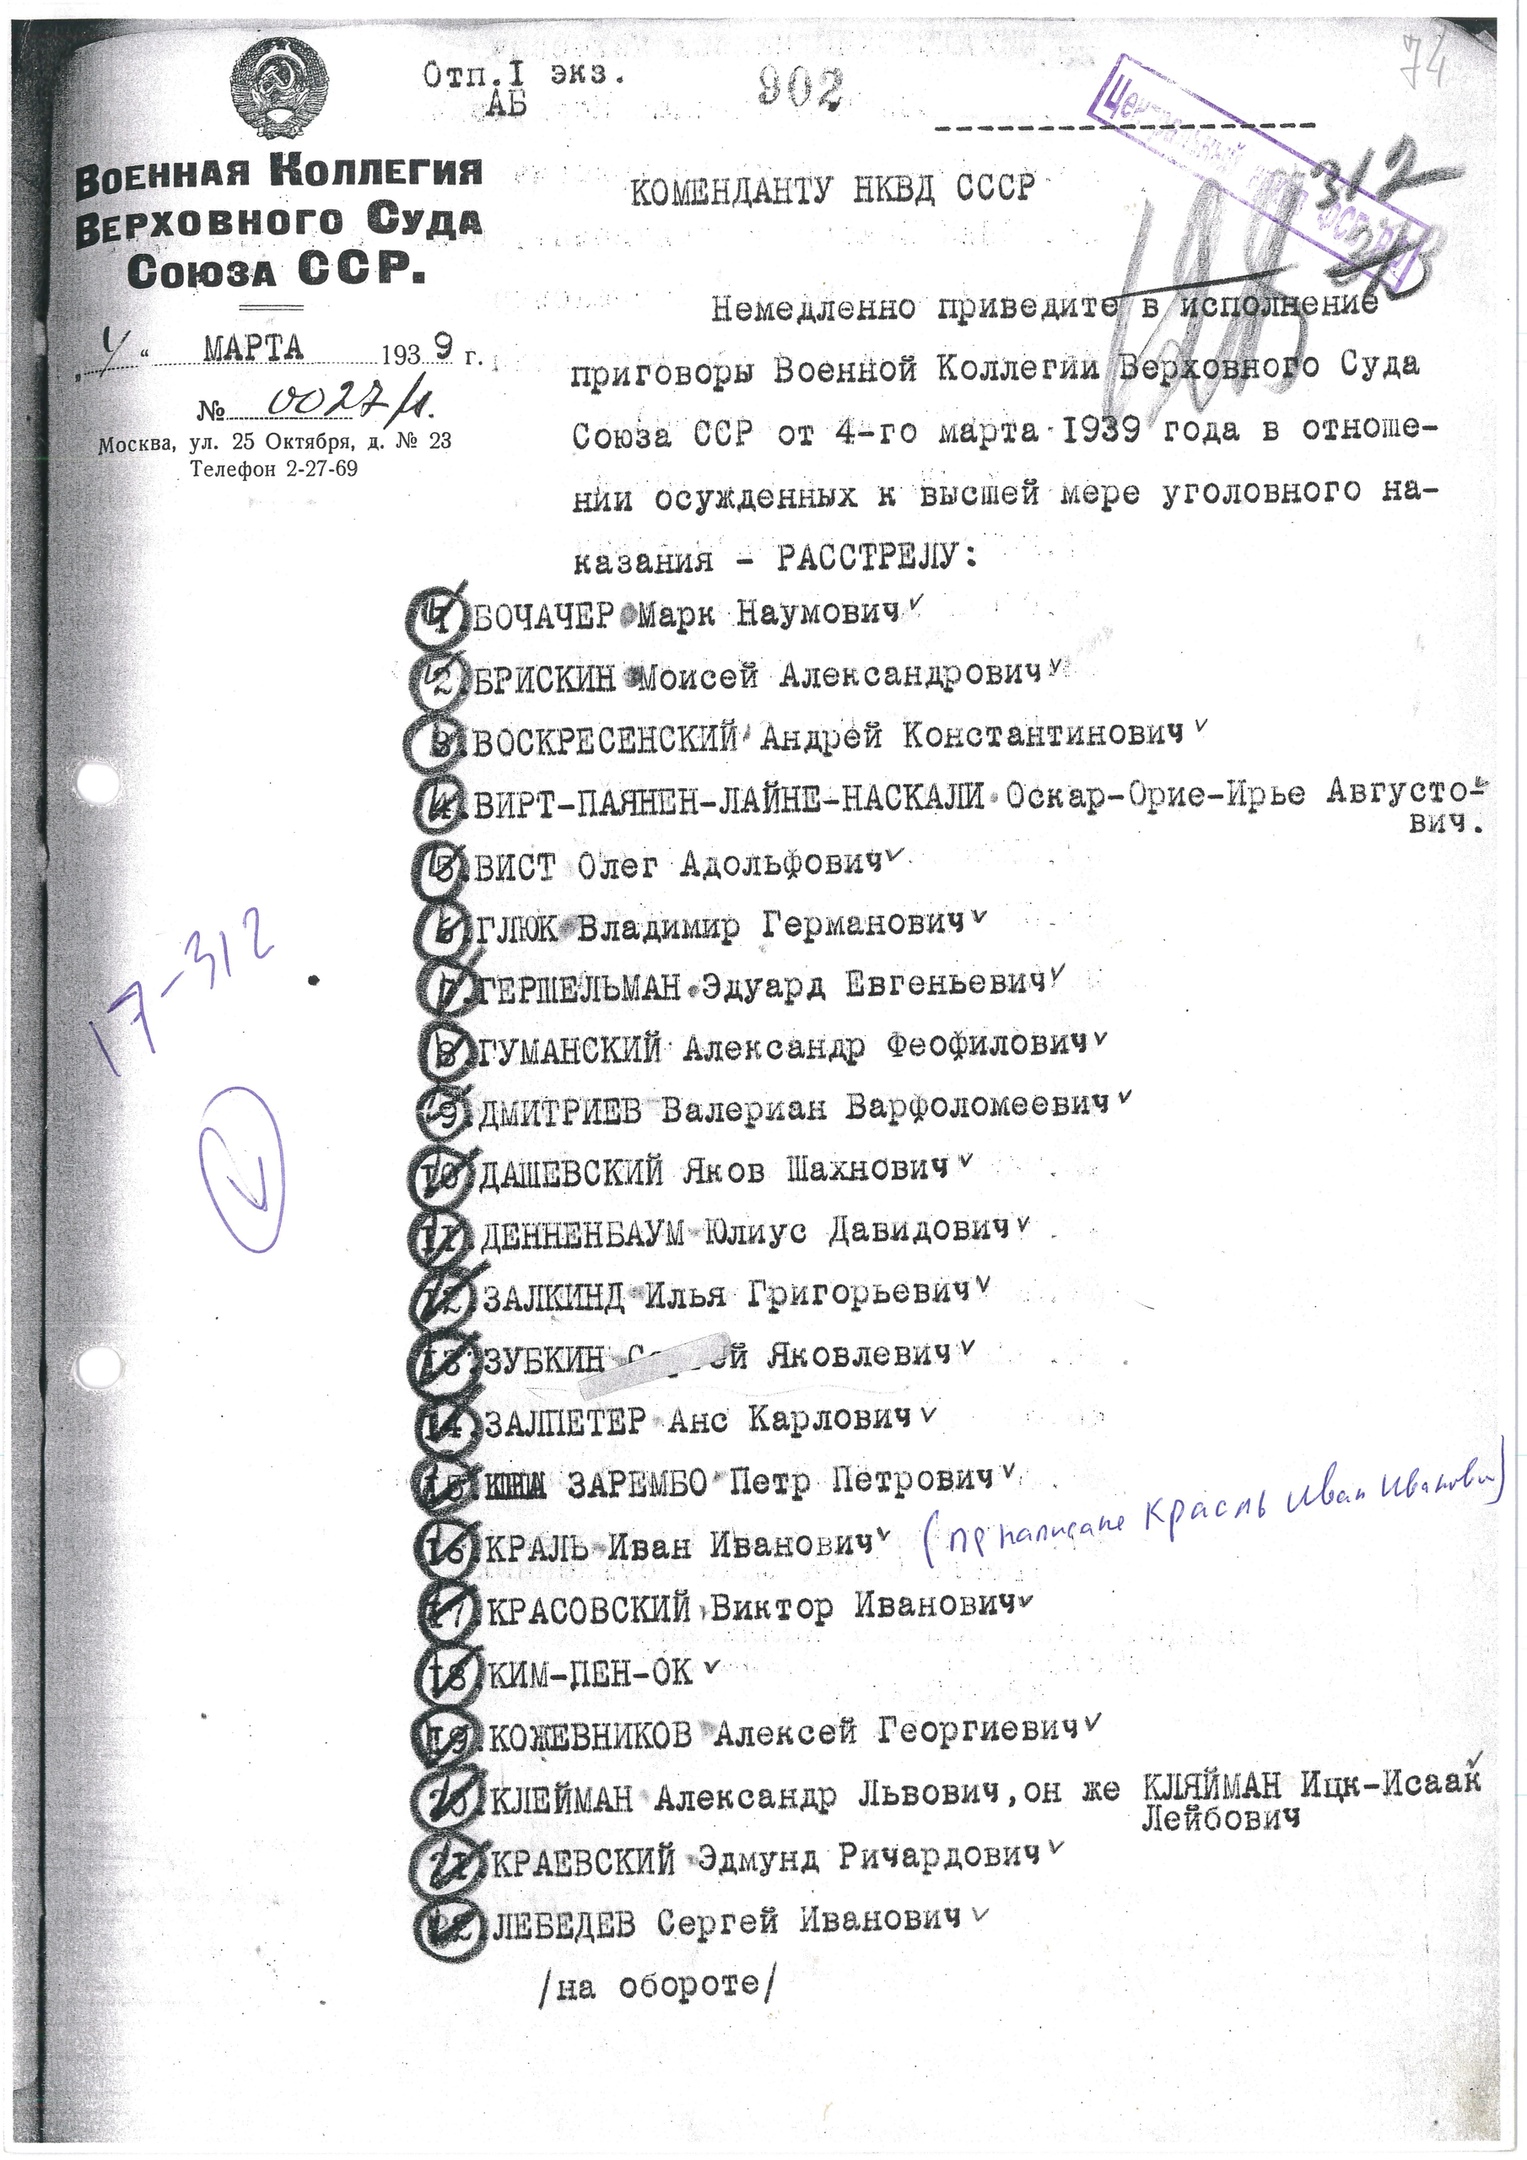 74
Отп.I экз.
АБ
902
Центральный
ВОЕННАЯ КОЛЛЕГИЯ
ВЕРХОВНОГО СУДА
СОЮЗА ССР.
"4" МАРТА 1939 г.
№ 0027/
Москва, ул. 25 Октября, д. № 23
Телефон 2-27-69
312
КОМЕНДАНТУ НКВД СССР
Немедленно приведите в исполнение
приговоры Военной Коллегии Верховного Суда
Союза ССР от 4-го марта 1939 года в отноше-
нии осужденных к высшей мере уголовного на-
казания - РАССТРЕЛУ:
1.БОЧАЧЕР Марк Наумович
2.БРИСКИН Моисей Александрович
3.ВОСКРЕСЕНСКИЙ Андрей Константинович
4.ВИРТ-ПАЯНЕН-ЛАЙНЕ-НАСКАЛИ Оскар-Орие-Ирье Августо-
вич.
5.ВИСТ Олег Адольфович
6.ГЛЮК Владимир Германович
7.ГЕРШЕЛЬМАН Эдуард Евгеньевич
8.ГУМАНСКИЙ Александр Феофилович
9.ДМИТРИЕВ Валериан Варфоломеевич
10.ДАШЕВСКИЙ Яков Шахнович
11.ДЕННЕНБАУМ Юлиус Давидович
12.ЗАЛКИНД Илья Григорьевич
13.ЗУБКИН Яковлевич
14.ЗАЛПЕТЕР Анс Карлович
15. ЗАРЕМБО Петр Петрович
16.КРАЛЬ Иван Иванович (Красль Иван Иванович)
17.КРАСОВСКИЙ Виктор Иванович
18.КИМ-ПЕН-ОК
19.КОЖЕВНИКОВ Алексей Георгиевич
20.КЛЕЙМАН Александр Львович,он же КЛЯЙМАН Ицк-Исаак
Лейбович
21.КРАЕВСКИЙ Эдмунд Ричардович
22.ЛЕБЕДЕВ Сергей Иванович
/на обороте/
17-312